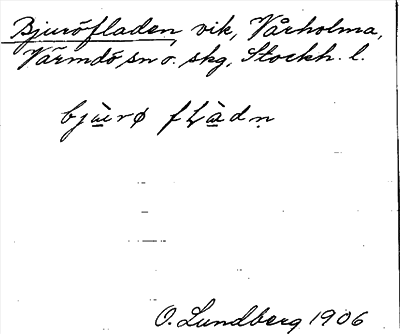 Bjuröfladen, vik, Vårholma,
Värmdö sn o. skg, Stockh. l.
bjù̀rø fLàdṇ
O. Lundberg 1906